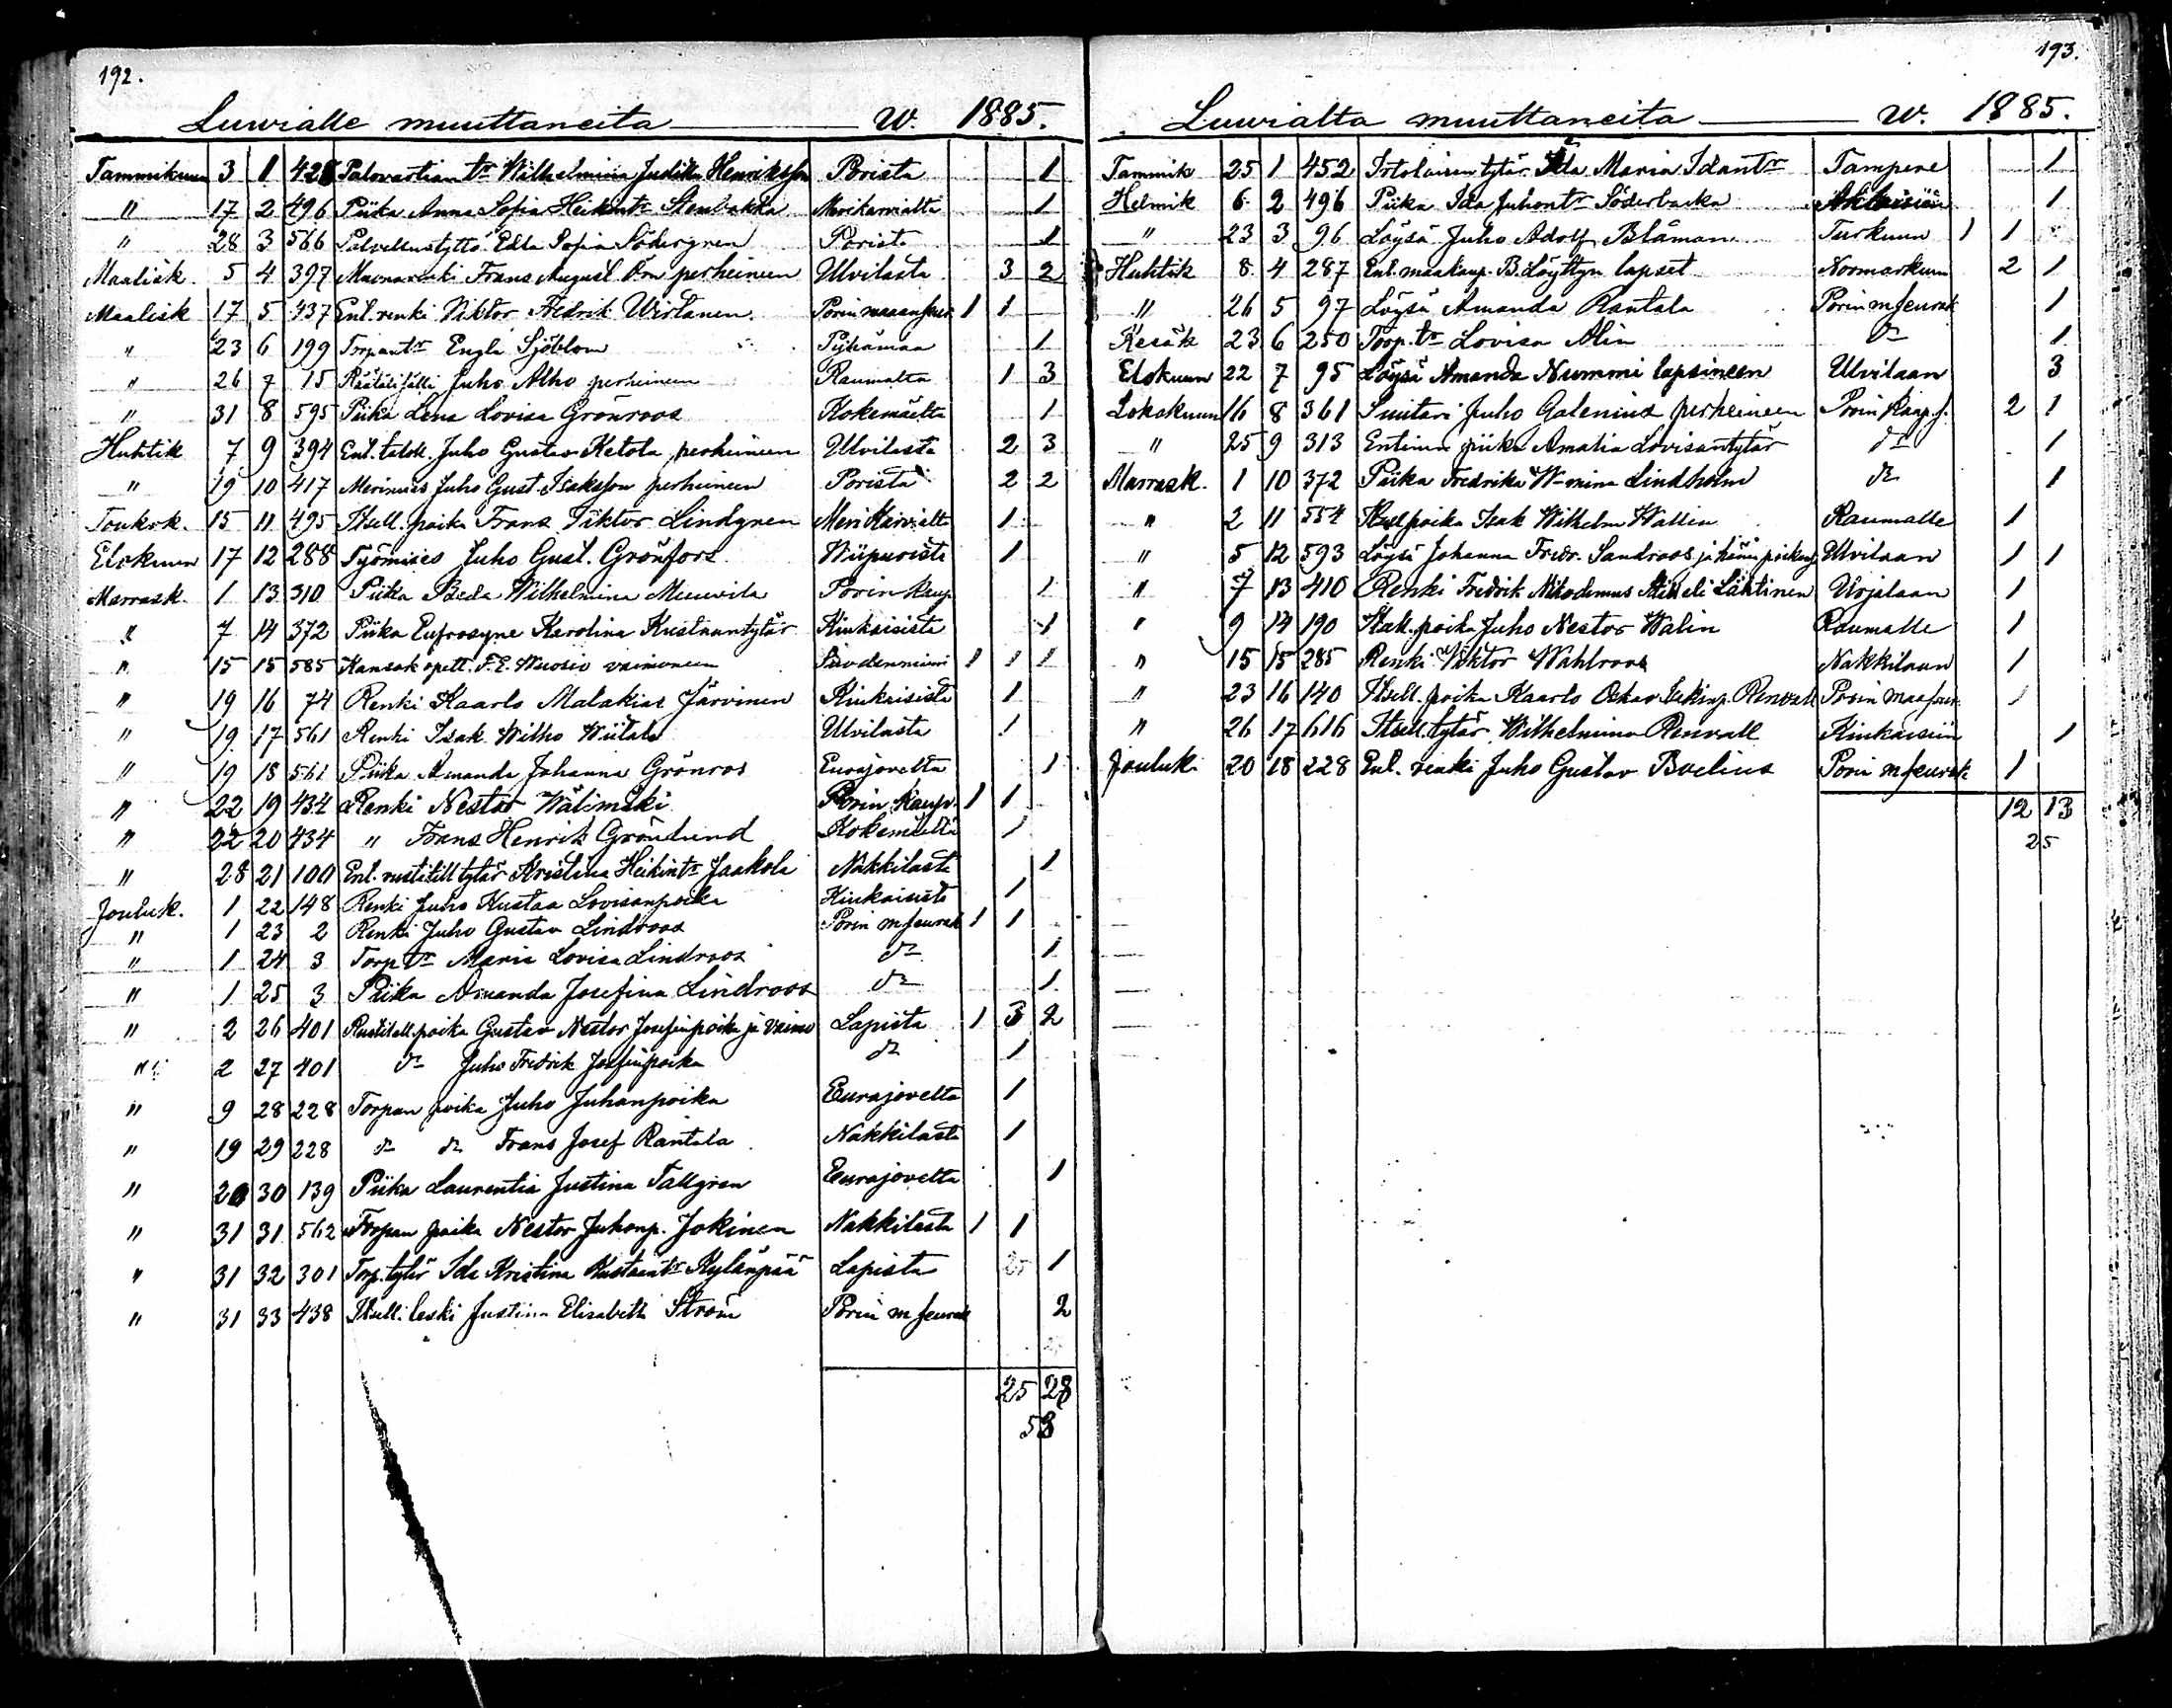 192.
Luwialle muuttaneita W. 1885.
Tammikuun 3 1 428 Palovartian tr Wilhelmina Judika Henriksson Porista 1
" 17 2 496 Piika Anna Sofia Heikintr Stenbakka Merikarvialta 1
" 28 3 566 Palvellustyttö Edla Sofia Södergren Porista 1
Maalisk. 5 4 397 Frans August Öm perheineen Ulvilasta 3 2
Maalisk 17 5 437 Ent. renki Viktor Fredrik Wirtanen Porin maaseur 1 1
" 23 6 199 Torpantr Engla Sjöblom Pyhämaa 1
" 26 7 15 Räätälifälli Juho Alho perheineen Raumalta 1 3
" 31 8 595 Piika Lena Lovisa Grönroos Kokemäeltä 1
Huhtik 7 9 394 Ent. talok. Juho Gustav Ketola perheineen Ulvilasta 2 3
" 19 10 417 Merimies Juho Gust. Isaksson perheineen Porista 2 2
Toukok. 15 11 495 Itsell. poika Frans Viktor Lindgren Meri Karvialta 1
Elokuun 17 12 288 Työmies Juho Gust. Grönfors Wiipurista 1
Marrask. 1 13 310 Piika Beda Wilhelmina Muurila Porin kaup 1
" 7 14 372 Piika Eufrosyne Karolina Kustaantytär Kiukaisista 1
" 15 15 585 Kansak opett. F. E. Wuorio vaimoneen Suodenniemi 1 1 1
" 19 16 74 Renki Kaarlo Malakias Järvinen Kiukaisista 1
" 19 17 561 Renki Isak Wilho Wiitala Ulvilasta 1
" 19 18 561 Piika Amanda Johanna Grönros Eurajoelta 1
" 22 19 434 Renki Nestor Wälimäki Porin Kaup. 1 1
" 22 20 434 " Frans Henrik Grönlund Kokemäeltä 1
" 28 21 100 Ent. rustitill tytär Kristina Heikintr Jaakola Nakkilasta 1
Jouluk. 1 22 148 Renki Juho Kustaa Lovisanpoika Kiukaisista 1
" 1 23 2 Renki Juho Gustav Lindroos Porin mseurak 1 1
" 1 24 3 Torp tr Maria Lovisa Lindroos do 1
" 1 25 3 Piika Amanda Josefina Lindroos do 1
" 2 26 401 Rustitall. poika Gustav Nestor Josefinpoika ja vaimo Lapista 1 3 2
" 2 27 401 do Juho Fredrik Josefinpoika do 1
" 9 28 228 Torpan poika Juho Juhanpoika Eurajovelta 1
" 19 29 228 do do Frans Josef Rantala Nakkilasta 1
" 20 30 139 Piika Laurentia Justina Tallgren Eurajovelta 1
" 31 31 562 Torpan poika Nestor Juhanp. Jokinen Nakkilasta 1 1
" 31 32 301 Torp. tytär Ida Kristina Kustaantr Kylänpää Lapista 1
" 31 33 438 Itsell. leski Justina Elisabeth Ström Porin m seurak 2
25 28
53
193.
Luwialta muuttaneita W. 1885.
Tammik 25 1 452 Irtolaisen tytär Ida Maria Idantr Tampere 1
Helmik 6 2 496 Piika Ida Juhontr Söderbacka 1
" 23 3 96 Löysä Juho Adolf Blåman Turkuun 1 1
Huhtik 8 4 287 Ent. maakaup. B. Löyttyn lapset Normarkuun 2 1
" 26 5 97 Löysä Amanda Rantala Porin mseurak 1
Kesäk 23 6 250 Torp. tr Lovisa Alin do 1
Elokuun 22 7 95 Löysä Amanda Nummi lapsineen Ulvilaan 3
Lokakuun 16 8 361 Suutari Juho Galenius perheineen Porin Kaup. s. 2 1
" 25 9 313 Entinen piika Amalia Lovisantytär do 1
Marrask. 1 10 372 Piika Fredrika W-mina Lindholm do 1
" 2 11 554 Itsel poika Isak Wilhelm Wallin Raumalle 1
" 5 12 593 Löysä Johanna Fredr. Sandroos ja hänen poikansa Ulvilaan 1 1
" 7 13 410 Renki Fredrik Nikodemus Lähtinen Urjalaan 1
" 9 14 190 Itsell. poika Juho Nestor Walin Raumalle 1
" 15 15 285 Renki Viktor Wahlroos Nakkilaan 1
" 23 16 140 Itsell. poika Kaarlo Oskar Renvall Porin maaseur. 1
" 26 17 616 Itsell. tytär Wilhelmina Renvall Kiukaisiin 1
Jouluk 20 18 228 Ent. renki Juho Gustav Boelius Porin mseurak 1
12 13
25